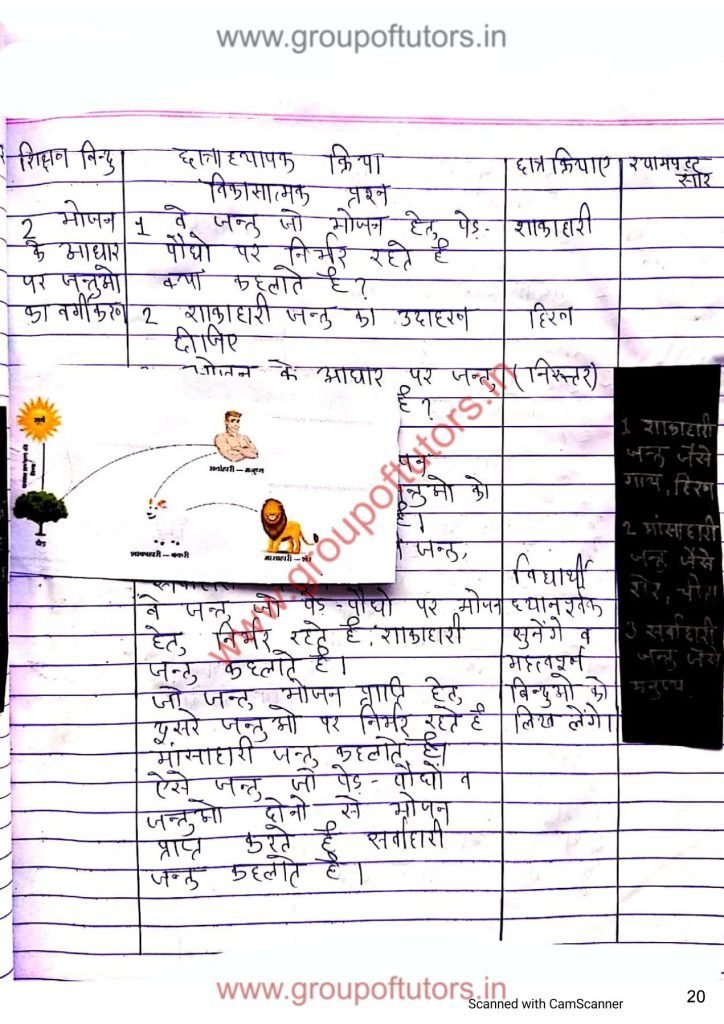 www.groupoftutors.in
शिक्षण बिन्दु
छात्राध्यापक क्रिया
छात्र क्रियाए
श्यामपट्ट सार
विकासात्मक प्रश्न
2 भोजन
के आधार
पर जन्तुओ
का वर्गीकरण
1 वे जन्तु जो भोजन हेतु पेड़-
पौधो पर निर्भर रहते है
क्या कहलाते है?
2 शाकाहारी जन्तु का उदाहरन
दीजिए
भोजन के आधार पर जन्तु
है?
न्तुओ को
है।
जन्तु,
वे जन्तु जो पेड़-पौधो पर भोजन
हेतु निर्भर रहते है, शाकाहारी
जन्तु कहलाते है।
जो जन्तु भोजन प्राप्ति हेतु
दूसरे जन्तुओ पर निर्भर रहते है
मांसाहारी जन्तु कहलाते है।
ऐसे जन्तु जो पेड़-पौधों व
जन्तुओ दोनो से भोजन
प्राप्त करते है सर्वाहारी
जन्तु कहलाते है।
शाकाहारी
हिरन
(निरूत्तर)
विद्यार्थी
ध्यानपूर्वक
सुनेंगे व
महत्वपूर्न
बिन्दुओ को
लिख लेंगे।
1 शाकाहारी
जन्तु जैसे
गाय, हिरन
2 मांसाहारी
जन्तु जैसे
शेर,
3 सर्वाहारी
जन्तु जैसे
मनुष्य
सूर्य
पेड़
सर्वाहारी – मनुष्य
शाकाहारी – बकरी
मांसाहारी – शेर
www.groupoftutors.in
www.groupoftutors.in
Scanned with CamScanner
20